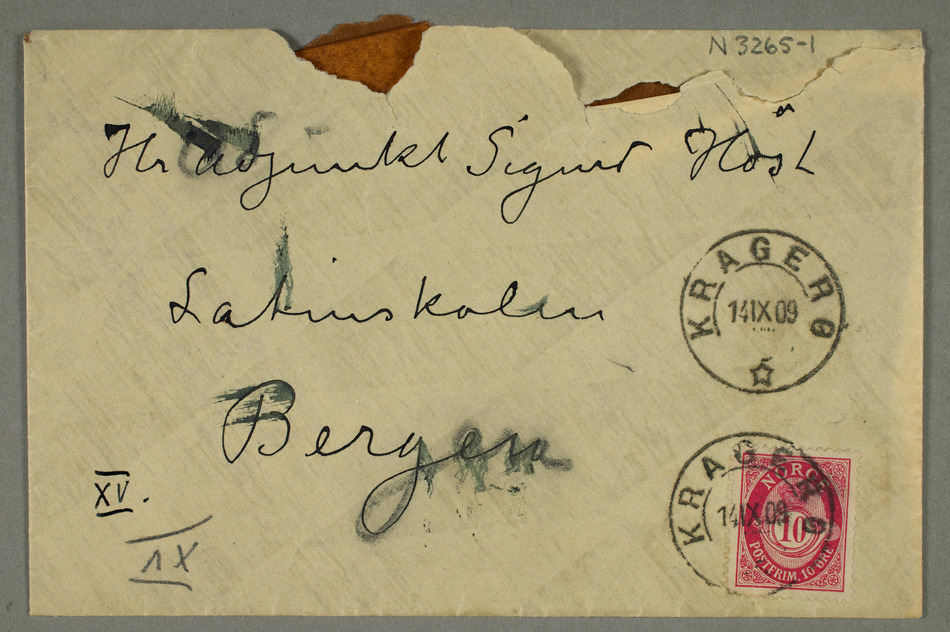 N 3265-1
Hr adjunkt Sigurd Höst
Latinskolen
Bergen
KRAGERØ
14 IX 09
KRAGERØ
14 IX 09
NORGE
10
POSTFRIM. 10 ØRE
XV.
1X